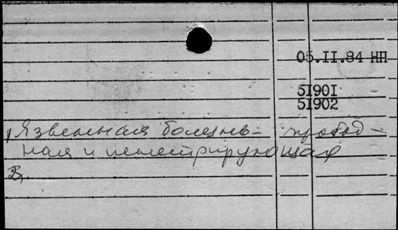 05.II.84 НП
51901
51902
1, Язвенная болезнь - пробод-
ная и пенетрирующая
2,